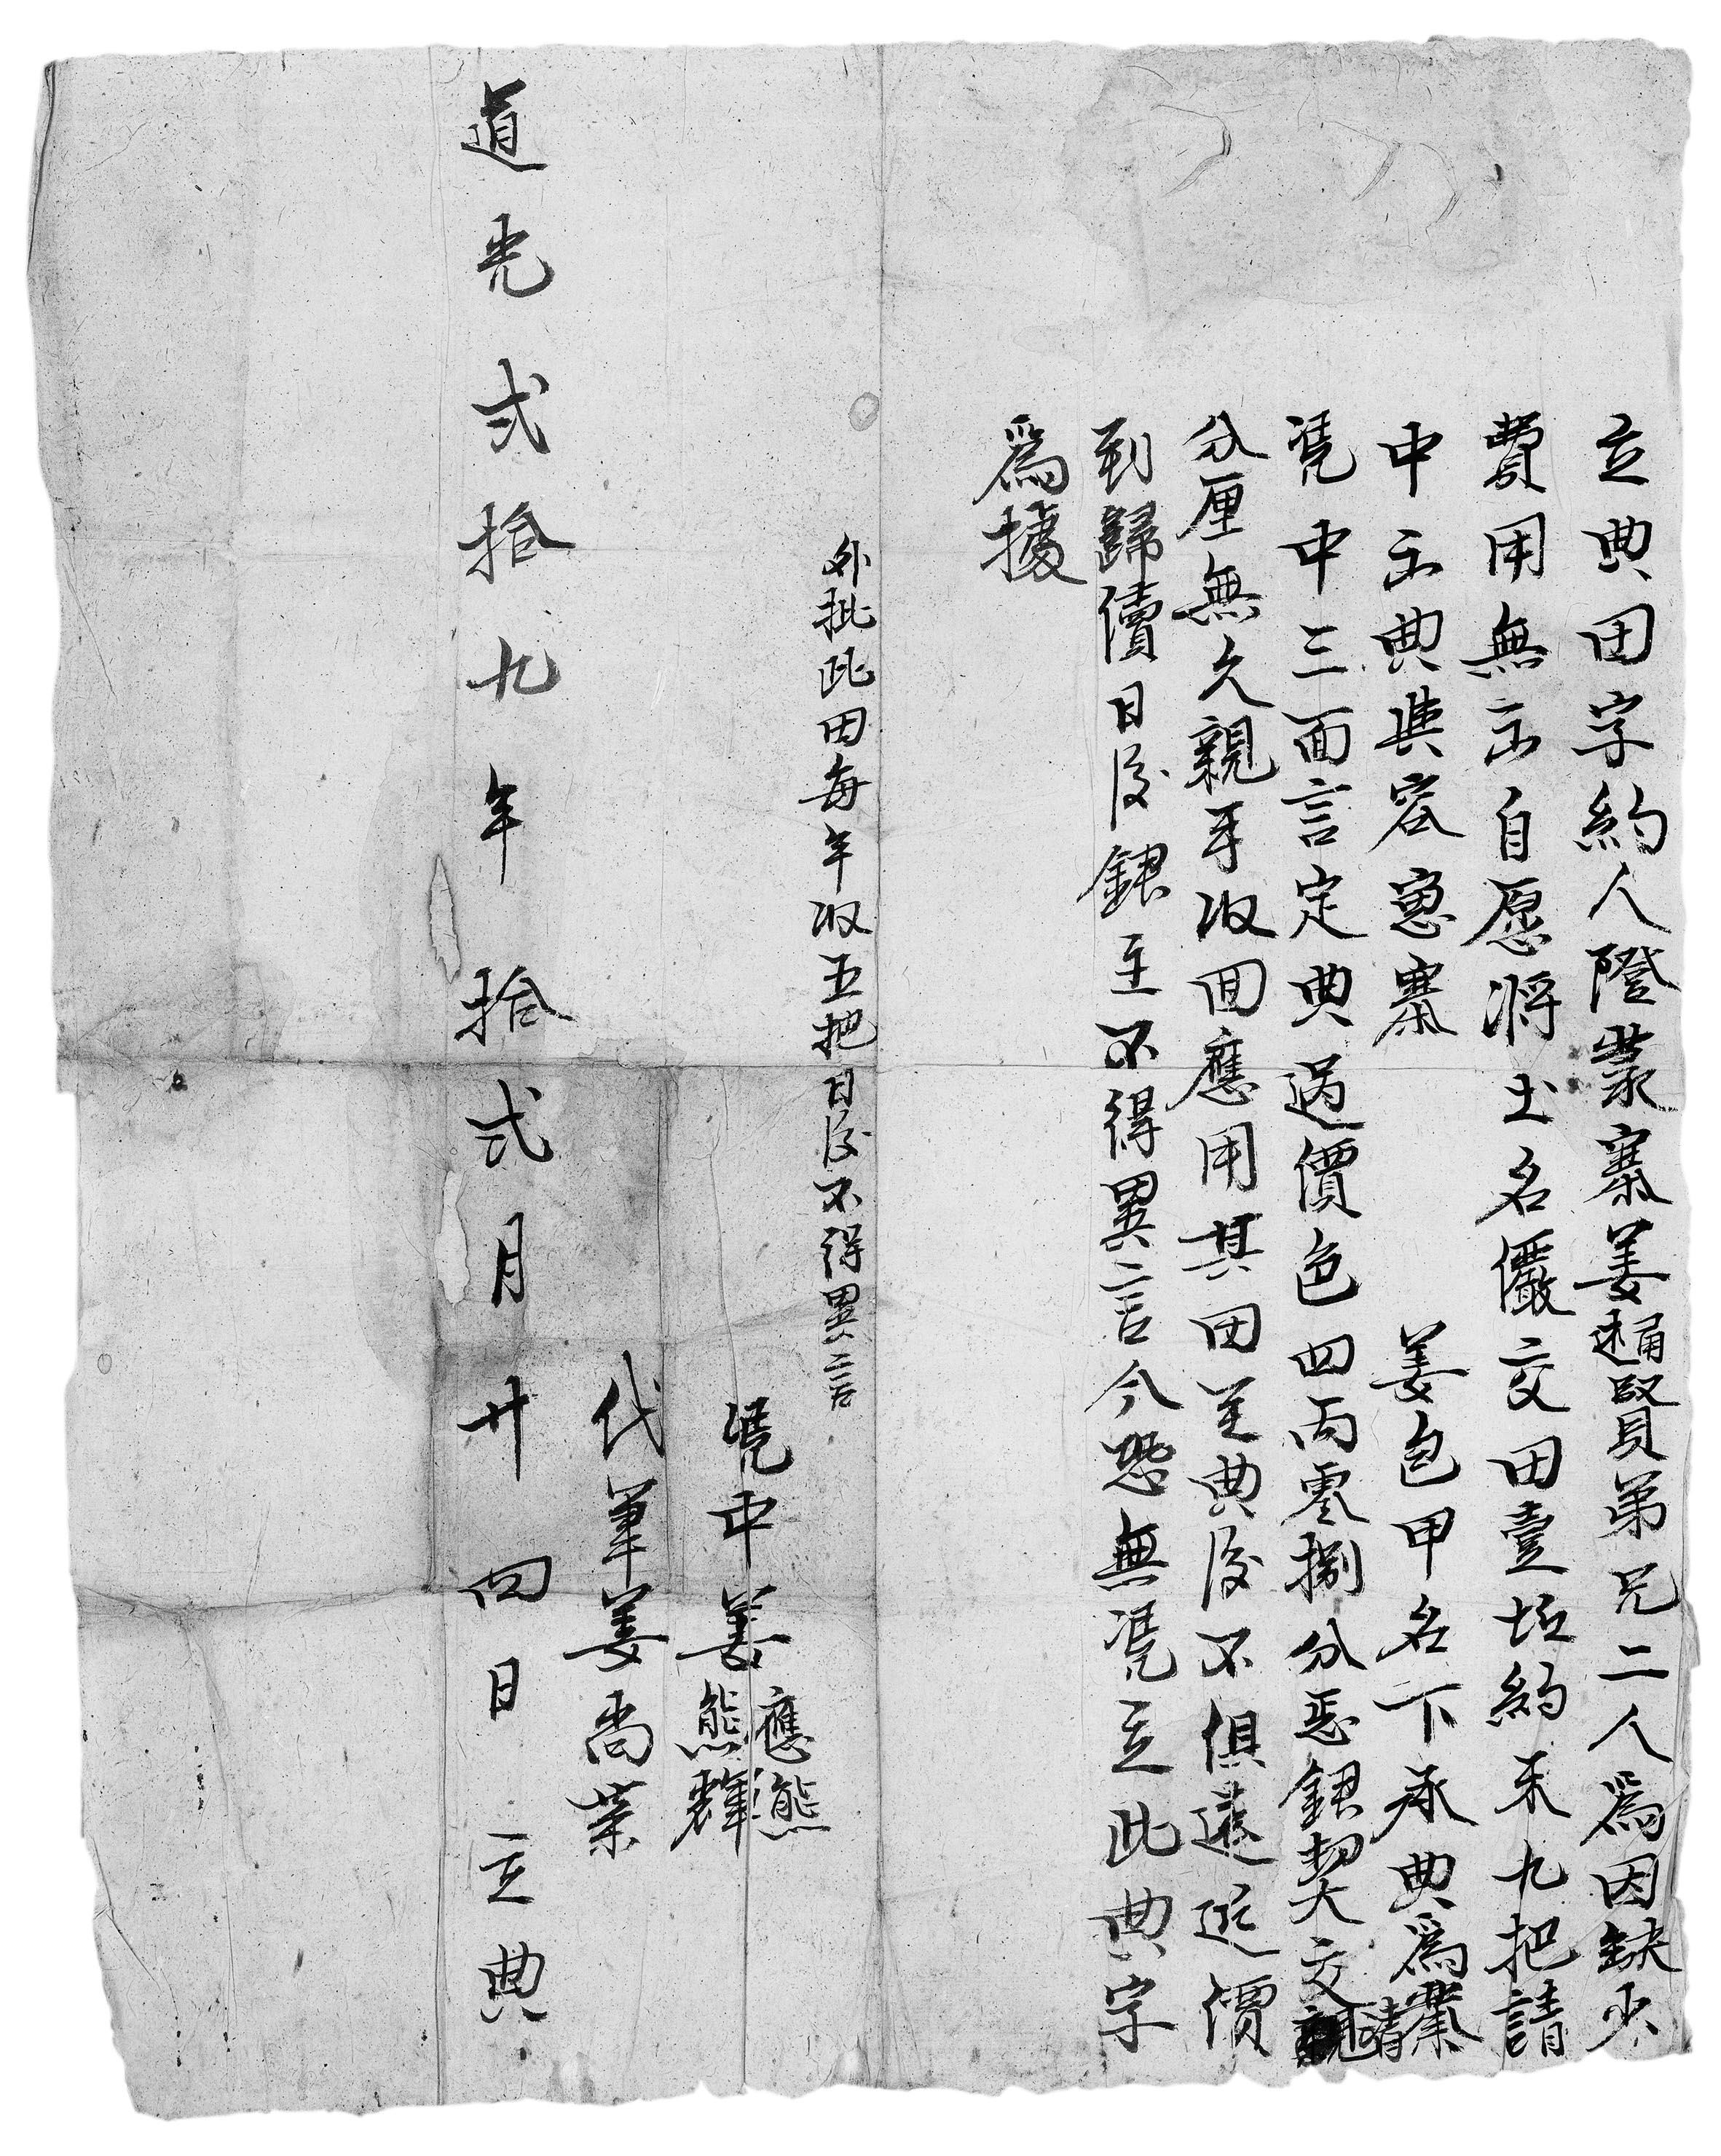 立典田字約人蹬蒙寨姜通賢弟兄二人爲因缺少
費用無出自愿將土名儼交田壹坵約禾九把請
中出典與容窻寨　姜包甲名下承典爲業
憑中三面言定典過價色四兩零捌分忠銀契交清
分厘無欠親手收回應用其田至典後不俱遠近價
到歸價日後銀主不得異言今恐無憑立此典字
爲據
外批此田每年收五把日後不得異言
憑中姜應熊
熊輝
代筆姜尚業
道光弍拾九年拾弍月廿四日立典